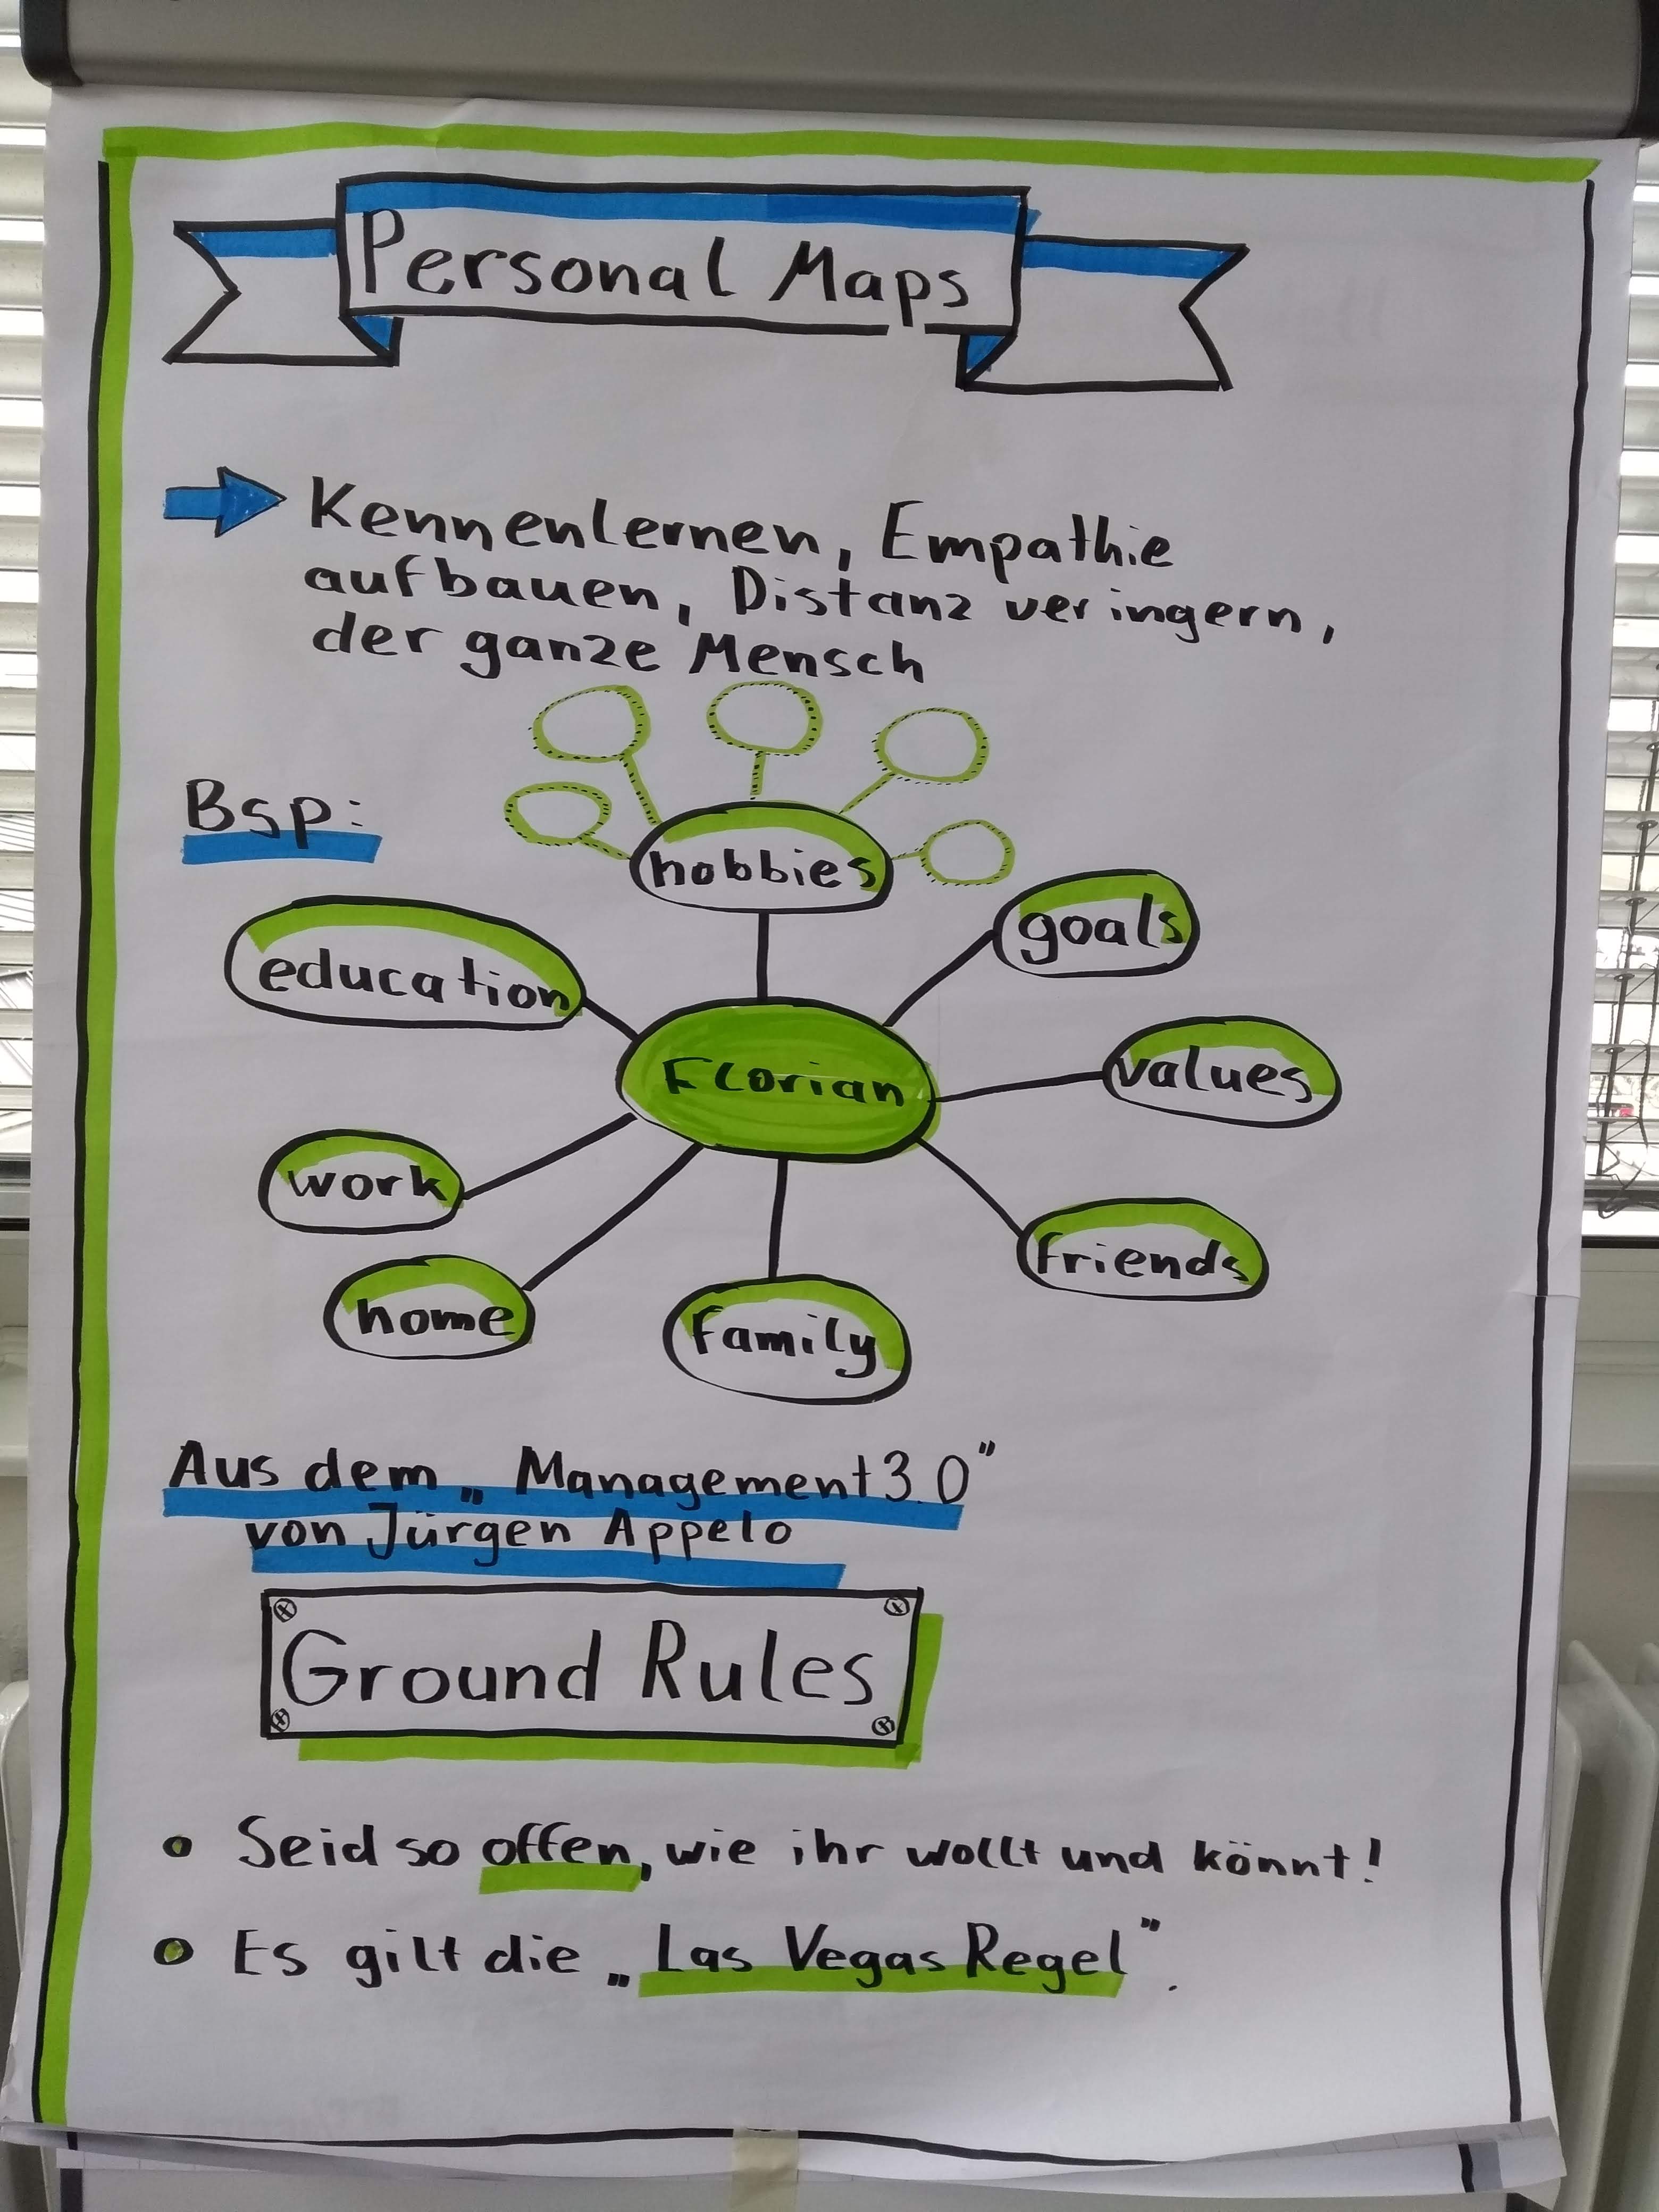 Personal Maps
Kennenlernen, Empathie
aufbauen, Distanz veringern,
der ganze Mensch
Bsp:
hobbies
goals
education
values
Florian
work
friends
home
family
Aus dem „Management 3.0”
von Jürgen Appelo
Ground Rules
• Seid so offen, wie ihr wollt und könnt!
• Es gilt die „Las Vegas Regel”.